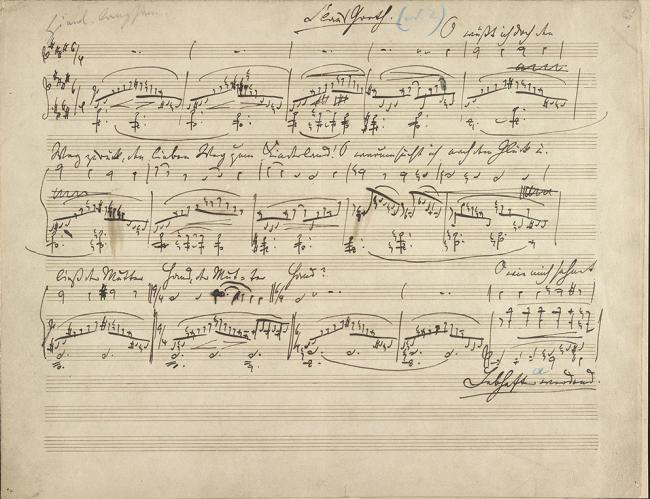 langsam.
Klaus Groth. (no 2)
O wüßt ich doch den
Weg zurück, den lieben Weg zum Kinderland! O warum sucht ich nach dem Glück u.
ließ der Mutter Hand, der Mut-ter Hand? O wie mich sehnet
Lebhafter werdend.